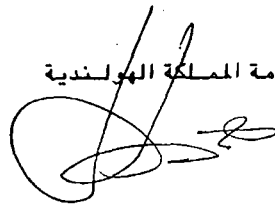 مة المملكة الهولندية